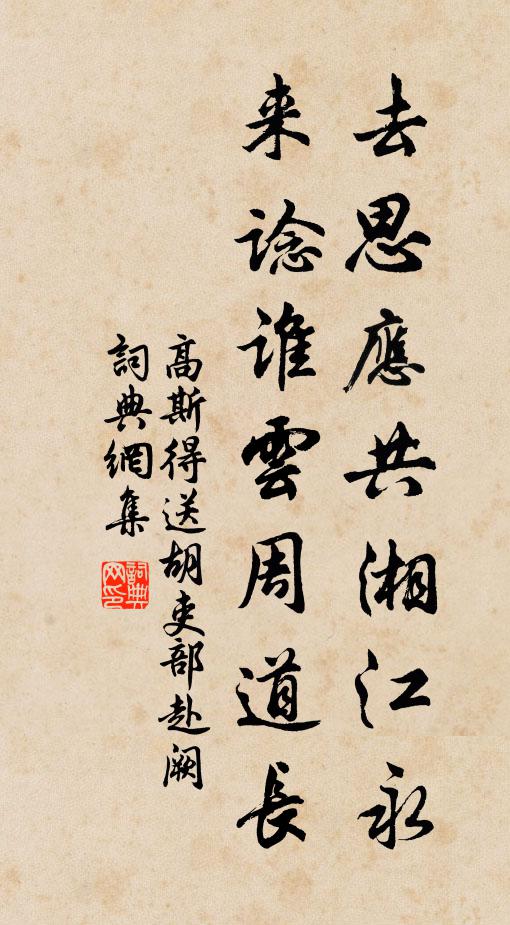 去思應共湘江永
来諗誰雲周道長
高斯得送胡吏部赴阙
詞典網集
詞典网印